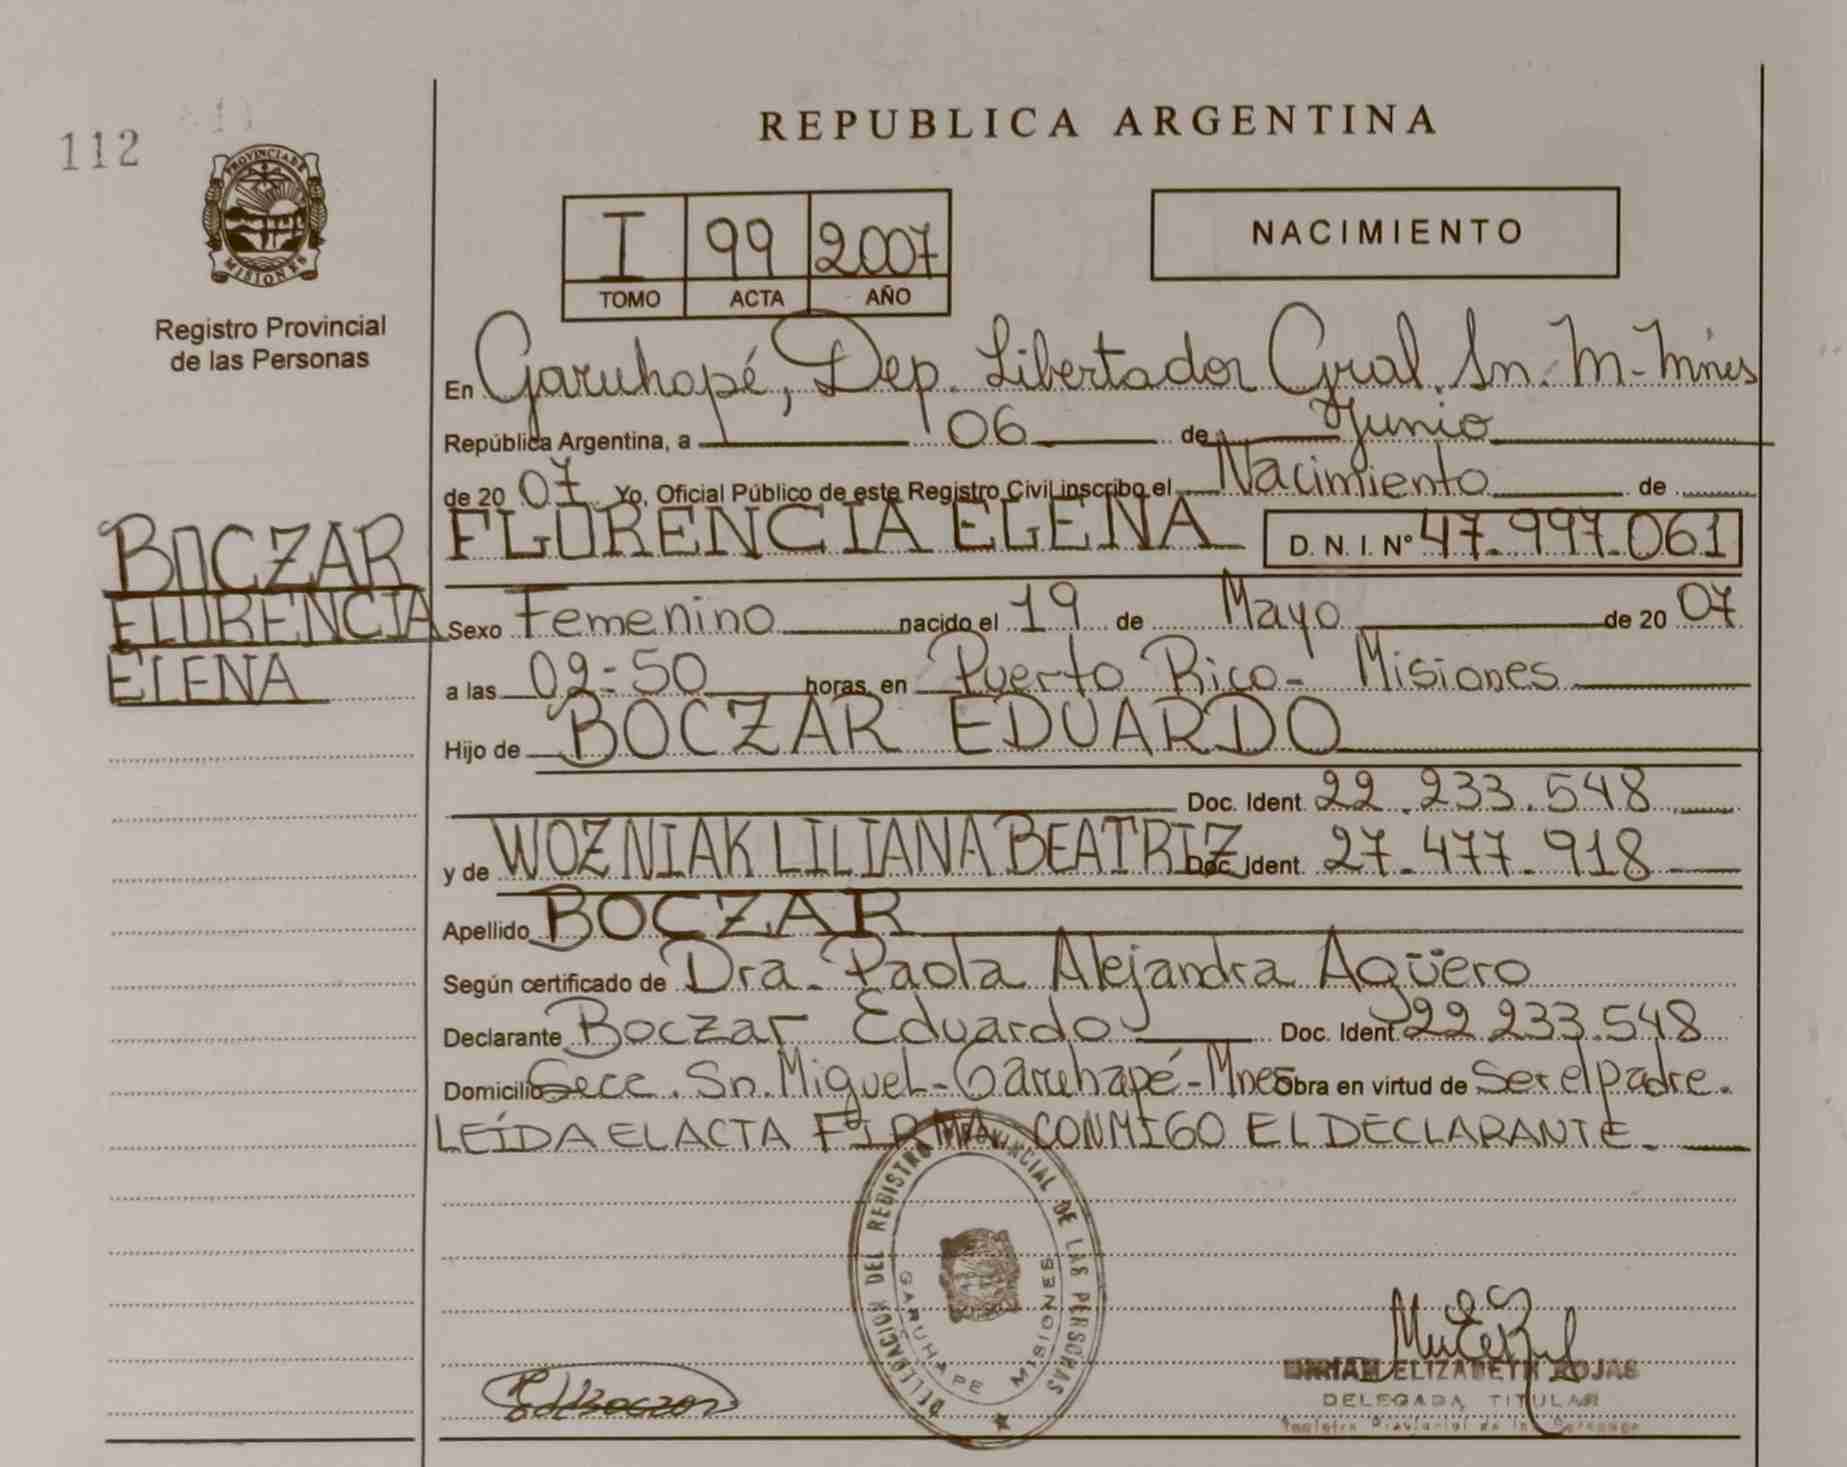 112
PROVINCIA DE
MISIONES
Registro Provincial
de las Personas
REPUBLICA ARGENTINA
I 99 2007
TOMO ACTA AÑO
NACIMIENTO
En Garuhapé, Dep. Libertador Gral. Sn. M- Mnes
República Argentina, a 06 de Junio
de 20 07 Yo, Oficial Público de este Registro Civil inscribo el Nacimiento de
FLORENCIA ELENA D. N. I. N° 47.997.061
BOCZAR
FLORENCIA
ELENA
Sexo Femenino nacido el 19 de Mayo de 20 07
a las 02-50 horas, en Puerto Rico- Misiones
Hijo de BOCZAR EDUARDO
Doc. Ident. 22.233.548
y de WOZNIAK LILIANA BEATRIZ Doc. Ident. 27.477.918
Apellido BOCZAR
Según certificado de Dra. Paola Alejandra Agüero
Declarante Boczar Eduardo Doc. Ident. 22 233.548
Domicilio Secc. Sn. Miguel-Garuhapé-Mnes obra en virtud de Ser el padre.
LEÍDA EL ACTA FIRMA CONMIGO EL DECLARANTE.
DELEGACION DEL REGISTRO PROVINCIAL DE LAS PERSONAS
GARUHAPE MISIONES
ELIZABETH ROJAS
DELEGADA TITULAR